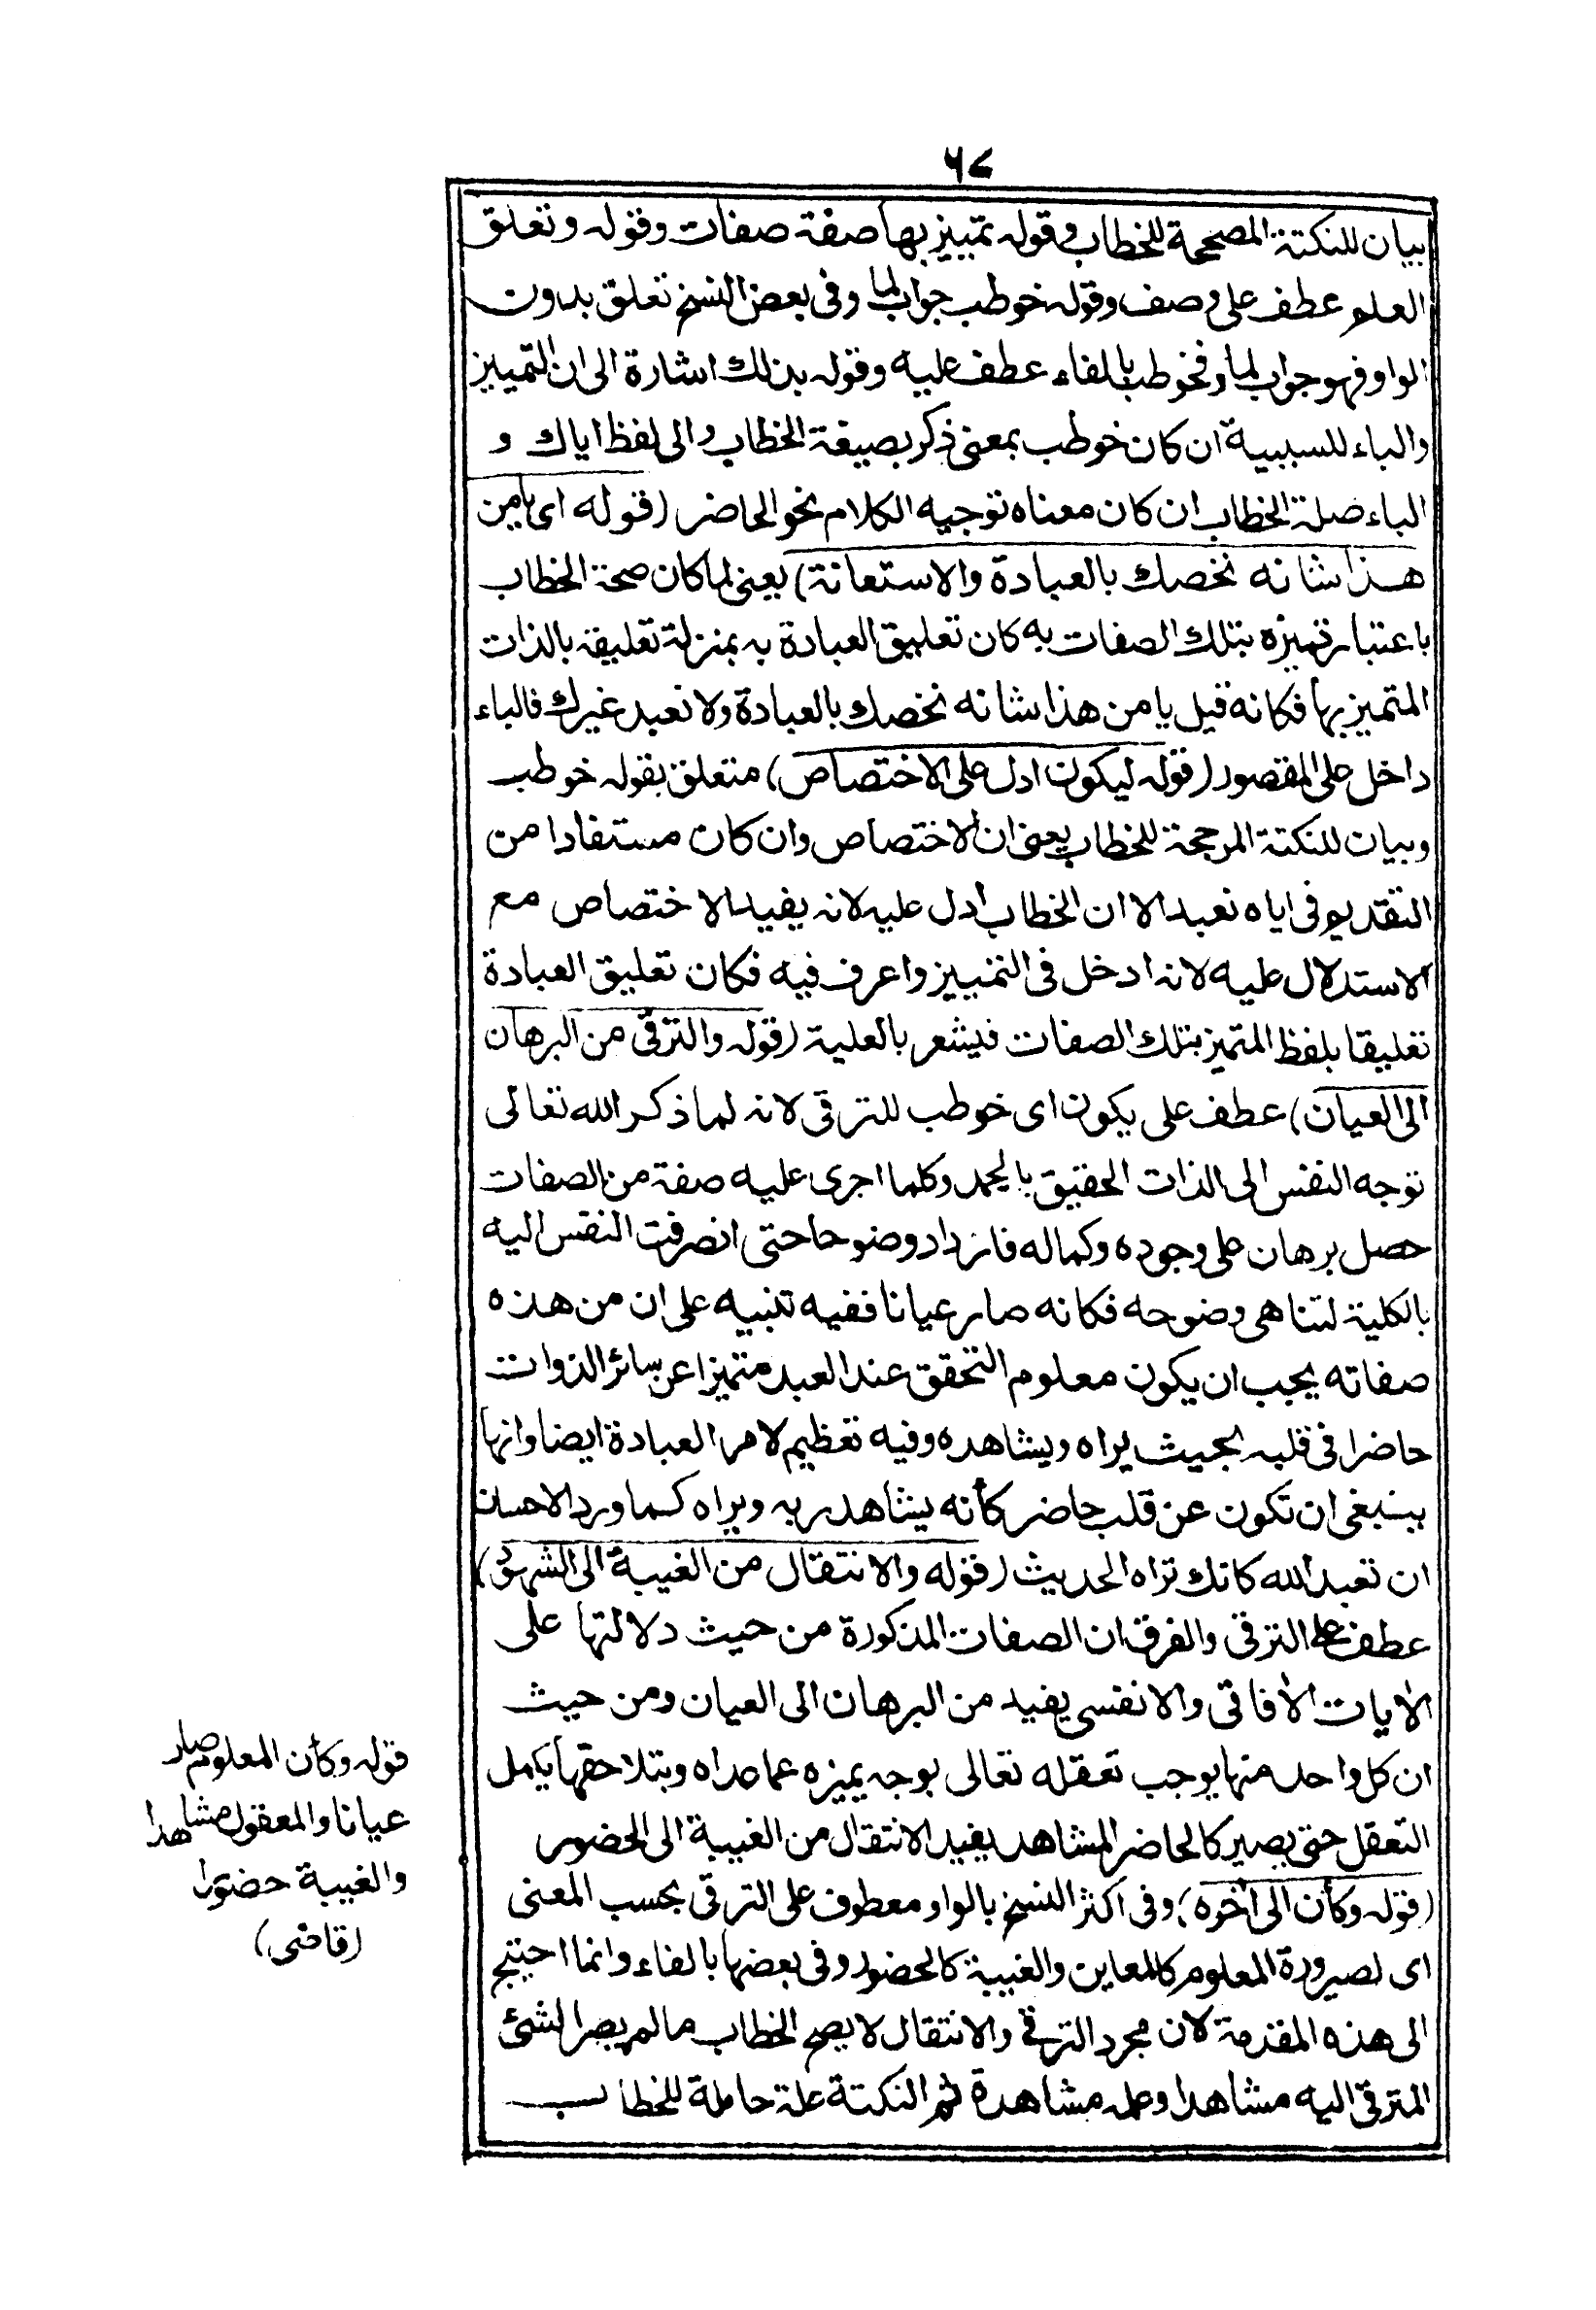 ٦٧
بيان للنكتة المصححة للخطاب وقوله تمييز بها صفة صفات وقوله وتعلق
العلم عطف على وصف وقوله خوطب جواب لما وفى بعض النسخ تعلق بدون
الواو فهو جواب لما وفخوطب بالفاء عطف عليه وقوله بذلك اشارة الى ان التمييز
والباء للسببية ان كان خوطب بمعنى ذكر بصيغة الخطاب والى لفظ اياك و
الباء صلة الخطاب ان كان معناه توجيه الكلام نحو الحاضر (قوله اى يا من
هذا شانه نخصك بالعبادة والاستعانة) يعنى لما كان صحة الخطاب
باعتبار تميزه بتلك الصفات به كان تعليق العبادة به بمنزلة تعليقه بالذات
المتميز بها فكانه قيل يا من هذا شانه نخصك بالعبادة ولا نعبد غيرك فالباء
داخل على المقصور (قوله ليكون ادل على الاختصاص) متعلق بقوله خوطب
وبيان للنكتة المرجحة للخطاب يعنى ان الاختصاص وان كان مستفادا من
التقديم فى اياه نعبد الا ان الخطاب ادل عليه لانه يفيد الاختصاص مع
الاستدلال عليه لانه ادخل فى التمييز واعرف فيه فكان تعليق العبادة
تعليقا بلفظ المتميز بتلك الصفات فيشعر بالعلية (قوله والترقى من البرهان
الى العيان) عطف على يكون اى خوطب للترقى لانه لما ذكر الله تعالى
توجه النفس الى الذات الحقيق بالحمد وكلما اجرى عليه صفة من الصفات
حصل برهان على وجوده وكماله فازداد وضوحا حتى انصرفت النفس اليه
بالكلية لتناهى وضوحه فكانه صار عيانا ففيه تنبيه على ان من هذه
صفاته يجب ان يكون معلوم التحقق عند العبد متميزا عن سائر الذوات
حاضرا فى قلبه بحيث يراه ويشاهده وفيه تعظيم لامر العبادة ايضا وانها
ينبغى ان تكون عن قلب حاضر كأنه يشاهد ربه ويراه كما ورد الاحسان
ان تعبد الله كانك تراه الحديث (قوله والانتقال من الغيبة الى الشهود)
عطف على الترقى والفرق ان الصفات المذكورة من حيث دلالتها على
الأيات الأفاقى والانفسى يفيد من البرهان الى العيان ومن حيث
ان كل واحد منها يوجب تعقله تعالى بوجه يميزه عما عداه وبتلاحقها يكمل
التعقل حتى يصير كالحاضر المشاهد يفيد الانتقال من الغيبة الى الحضور
(قوله وكأن الى أخره) وفى اكثر النسخ بالواو معطوف على الترقى بحسب المعنى
اى لصيرورة المعلوم كالمعاين والغيبة كالحضور وفى بعضها بالفاء وانما احتيج
الى هذه المقدمة لان مجرد الترقى والانتقال لا يصح الخطاب ما لم يصر الشئ
المترقى اليه مشاهدا وعلمه مشاهدة ثم النكتة علة حاملة للخطاب
قوله وكأن المعلوم صار
عيانا والمعقول مشاهدا
والغيبة حضورا
(قاضى)